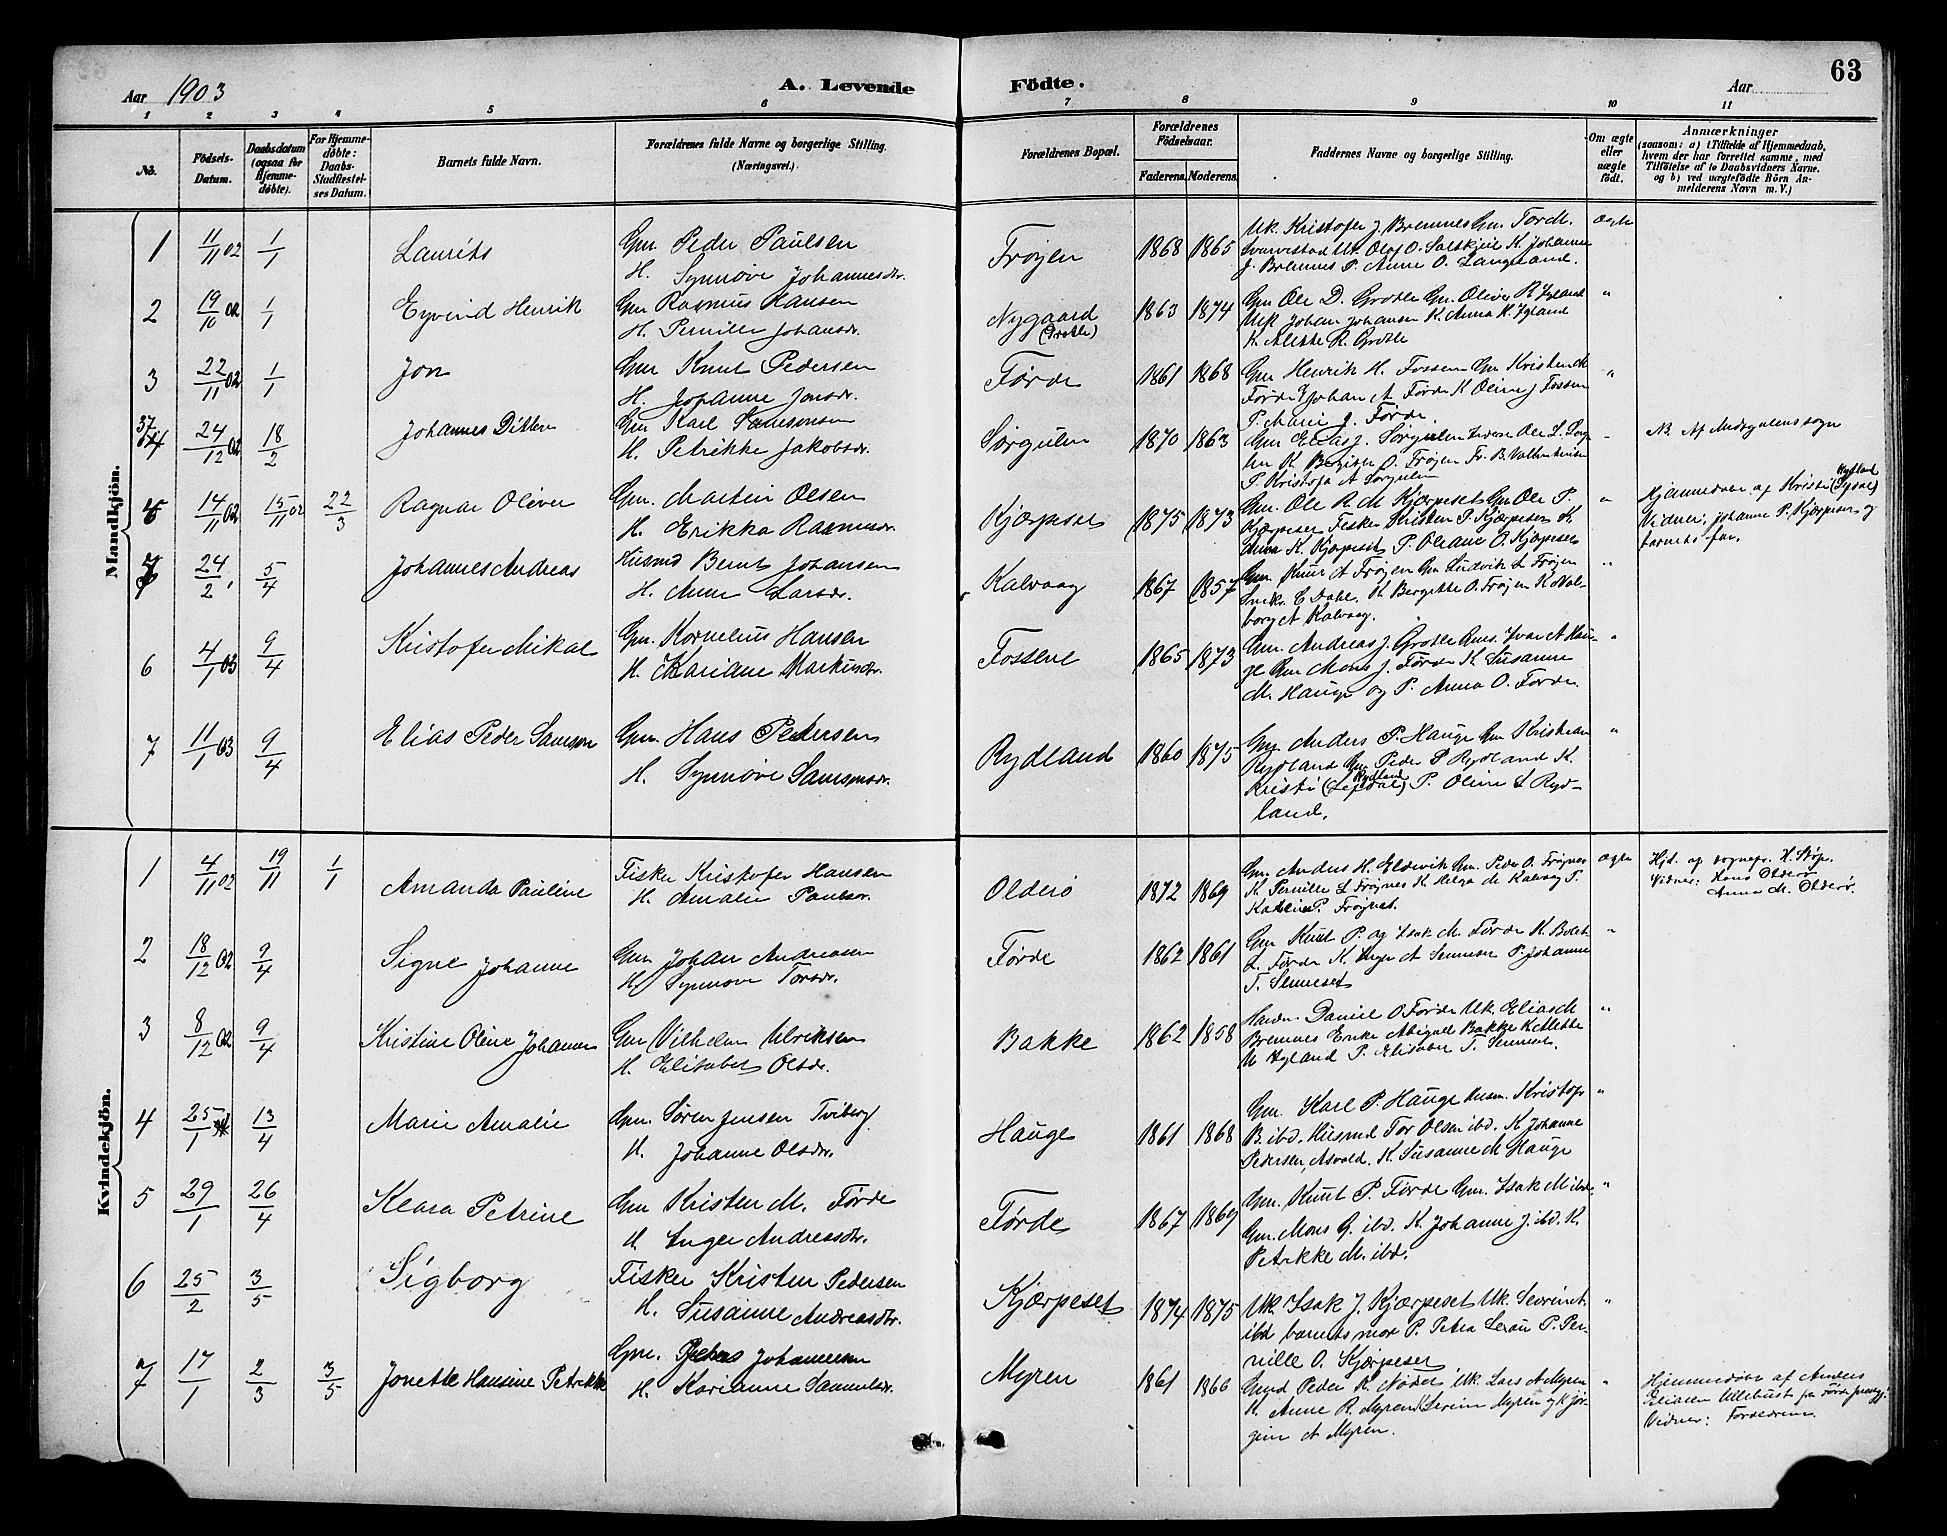 63
Aar 1903
A. Levende
Födte.
Aar
1 2 3 4 5 6 7 8 9 10 11
No.
Födsels-Datum.
Daabsdatum (ogsaa for Hjemme-döbte).
For Hjemme-döbte: Daabs-Stadfæstel-ses Datum.
Barnets fulde Navn.
Forældrenes fulde Navne og borgerlige Stilling. (Næringsvei.)
Forældrenes Bopæl.
Forældrenes Födselsaar.
Faderens.
Moderens.
Faddernes Navne og borgerlige Stilling.
Om ægte eller uægte födt.
Anmærkninger
(saasom: a) i Tilfælde af Hjemmedaab, hvem der har forrettet samme, med Tilföielse af to Daabsvidners Navne, og b) ved uægtefödte Börn An-melderens Navn m. V.)
Mandkjön.
1 11/11 02 1/1 Laurits Gm. Peder Paulsen
H. Synnøve Johannesdr.
Frøyen 1868 1865 Uk. Kristofer J. Bremnes Gm. Tor M.
Uk. Olaf O. K. Johanne
J. Bremnes P. Anne O. Langeland.
Ægte
2 19/10 02 1/1 Eyvind Henrik Gm Rasmus Hansen
H. Pernille Johansdr.
Nygaard
(Grotle)
1863 1874 Gm Ole D. Grotle Gm. Oliver R. Hyland
Uk Johan Johansen K. Anna K. Hyland
K. Alette R. Grotle
"
3 22/11 02 1/1 Jon Gm Knut Pedersen
H. Johanne Jonsdr.
Førde 1861 1868 Gm Henrik H. Fossen Gm Kristen M
Førde Johan A Førde K Oline J Fossen
P. Marie J. Førde.
"
37
4 24/12 02 18/2 Johannes Ditlev Gm Karl Samsonsen
H. Petrikke Jakobsdr.
Sørgulen 1870 1863 Gm Elias J. Sørgulen Ole L. Sørgu
len K Bergitte O. Frøyen Fr. B.
P. Kristofa A Sørgulen
NB. Af sogn
5 14/11 02 15/11 02 22/3 Ragnar Oliver Gm. Martin Olsen
H. Erikka Rasmusdr.
Kjærpeset 1875 1873 Gm. Ole R. M Kjærpeset Gm Ole P.
Kjærpeset Fisker Kristen P. Kjærpeset K.
Anna K. Kjærpeset P. Oleane O. Kjærpeset
"
Hjemmedøbt af Kristi (Rydland)
Vidner: Johanne P. Kjærpeset og
barnets far.
7 24/2 5/4 Johannes Andreas Husmd Bernt Johansen
H. Anne Larsdr.
Kalvaag 1867 1857 Gm. Knut A Frøyen Gm Ludvik L Frøyen
E Dahl. K Bergitte O. Frøyen K Val-
borg A Kalvaag.
"
6 4/1 03 9/4 Kristofer Mikal Gm. Kornelius Hansen
H. Mariane Markusdr.
Fossene 1865 1873 Gm. Andreas J. Grotle Ivar A Hau-
ge Gm Mons J. Førde K. Susanne
M. Hauge og P. Anna O. Førde.
"
7 11/1 03 9/4 Elias Peder Samson Gm. Hans Pedersen
H. Synnøve Samsonsdr.
Rydland 1860 1875 Gm Anders P. Hauge Gm Kristian
Rydland Gm Peder S Rydland K.
Kristi (Rydland) P. Oline S Ryd-
land.
"
Kvindekjön.
1 4/11 02 19/11 1/1 Amanda Pauline Fisker Kristofer Hansen
H. Amalie Paulsdr.
Olderø 1872 1869 Gm. Anders H. Eldevik Gm. Peder O. Frøynes
K. Pernille L Frøynes K. Helga M. Kalvaag P.
Katrine P. Frøynes.
Ægte
Hjd. af sognepr. K. Støp.
Vidner: Hans Olderø
Anna M. Olderø.
2 18/12 02 9/4 Signe Johanne Gm Johan Andreasen
H. Synnøve Torsdr.
Førde 1862 1861 Gm Knut P. og Isak M. Førde K. Bolet
L. Førde K. Inger A Senneset P. Johanne
T. Senneset
"
3 8/12 02 9/4 Kristine Oline Johanne Gm Vilhelm Ulriksen
H. Elisabet Olsdr.
Bakke 1862 1858 Daniel O Førde Uk. Elias M
Bremnes Enke Abigael Bakke K Alette
Hyland P. Elisabet T. Senneset.
"
4 25/1 13/4 Marie Amalie Gm. Søren Jensen Tviberg
H. Johanne Olsdr.
Hauge 1861 1868 Gm. Karl P. Hauge Husm. Kristofer
B. ibd. Husmd Tor Olsen ibd. K Johanne
Pedersen, Asvold. K. Susanne M Hauge
"
5 29/1 26/4 Klara Petrine Gm Kristen M. Førde
H. Inger Andreasdr.
Førde 1867 1869 Gm. Knut P. Førde Gm. Isak M ibd.
Gm. Mons G. ibd. K. Johanne J. ibd. K.
Petrikke M. ibd.
"
6 25/2 3/5 Sigborg Fisker Kristen Pedersen
H. Susanne Andreasdtr.
Kjærpeset 1874 1875 Uk. Isak J. Kjærpeset Uk. Severine
ibd barnets mor P. Petra P. Per-
nille O. Kjærpeset
"
7 17/1 2/3 3/5 Jonette Hansine Petrikke Gm. Johannesen
H. Karianne Samuelsdr.
Myren 1861 1866 Gmd Peder R. Uk. Lars A Myren
K. Anne R. Myren Severin Myren og K Jør-
gine A Myren.
"
Hjemmedøbt af Anders
Eliasen Ullehust fra Førde
Vidner: Forældrene.